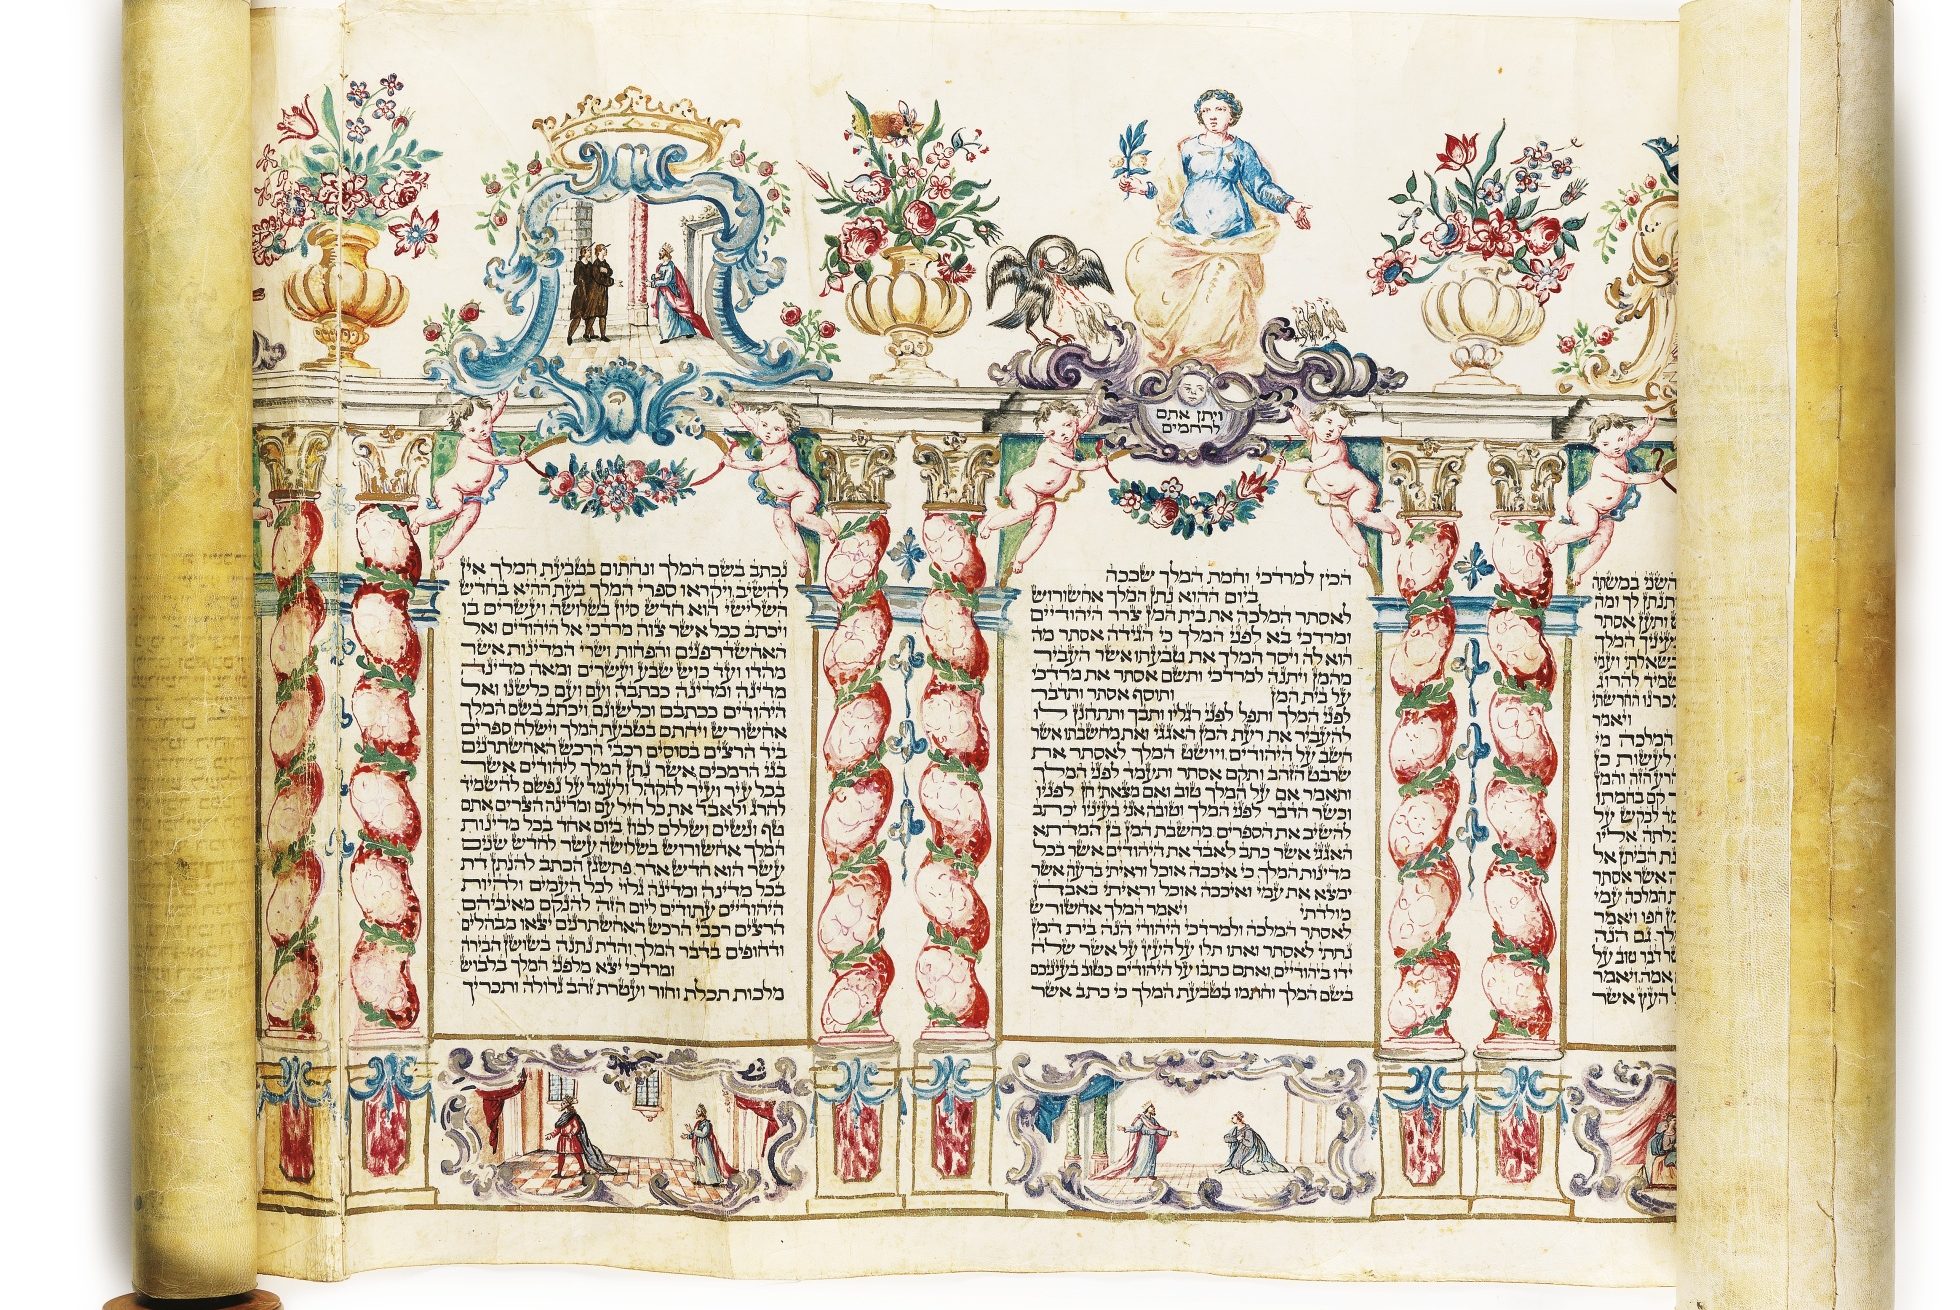 ויתן אתם
לרחמים
השני במשתה
תנתן לך ומה
ותען אסתר
בעיניך המלך
בשאלתי ועמי
להרוג
מכרנו החרשתי
ויאמר
המלכה מי
לעשות כן
הרע הזה והמן
קם בחמתו
לבקש על
אליו
הביתן אל
אשר אסתר
המלכה עמי
חפו ויאמר
גם הנה
דבר טוב על
ויאמר
העץ אשר
הכין למרדכי וחמת המלך שככה
ביום ההוא נתן המלך אחשורוש
לאסתר המלכה את בית המן צרר היהודיים
ומרדכי בא לפני המלך כי הגידה אסתר מה
הוא לה ויסר המלך את טבעתו אשר העביר
מהמן ויתנה למרדכי ותשם אסתר את מרדכי
על בית המן ותוסף אסתר ותדבר
לפני המלך ותפל לפני רגליו ותבך ותתחנן לו
להעביר את רעת המן האגגי ואת מחשבתו אשר
חשב על היהודים ויושט המלך לאסתר את
שרבט הזהב ותקם אסתר ותעמד לפני המלך
ותאמר אם על המלך טוב ואם מצאתי חן לפניו
וכשר הדבר לפני המלך וטובה אני בעיניו יכתב
להשיב את הספרים מחשבת המן בן המדתא
האגגי אשר כתב לאבד את היהודים אשר בכל
מדינות המלך כי איככה אוכל וראיתי ברעה אשר
ימצא את עמי ואיככה אוכל וראיתי באבדן
מולדתי ויאמר המלך אחשורש
לאסתר המלכה ולמרדכי היהודי הנה בית המן
נתתי לאסתר ואתו תלו על העץ על אשר שלח
ידו ביהודיים ואתם כתבו על היהודים כטוב בעיניכם
בשם המלך וחתמו בטבעת המלך כי כתב אשר
נכתב בשם המלך ונחתום בטבעת המלך אין
להשיב ויקראו ספרי המלך בעת ההיא בחדש
השלישי הוא חדש סיון בשלושה ועשרים בו
ויכתב ככל אשר צוה מרדכי אל היהודים ואל
האחשדרפנים והפחות ושרי המדינות אשר
מהדו ועד כוש שבע ועשרים ומאה מדינה
מדינה ומדינה ככתבה ועם ועם כלשנו ואל
היהודים ככתבם וכלשונם ויכתב בשם המלך
אחשורש ויחתם בטבעת המלך וישלח ספרים
ביד הרצים בסוסים רכבי הרכש האחשתרנים
בני הרמכים אשר נתן המלך ליהודים אשר
בכל עיר ועיר להקהל ולעמד על נפשם להשמיד
להרג ולאבד את כל חיל עם ומדינה הצרים אתם
טף ונשים ושללם לבוז ביום אחד בכל מדינות
המלך אחשורוש בשלושה עשר לחדש שנים
עשר הוא חדש אדר פתשגן הכתב להנתן דת
בכל מדינה ומדינה גלוי לכל העמים ולהיות
היהודיים עתודים ליום הזה להנקם מאיביהם
הרצים רכבי הרכש האחשתרנים יצאו מבהלים
ודחופים בדבר המלך והדת נתנה בשושן הבירה
ומרדכי יצא מלפני המלך בלבוש
מלכות תכלת וחור ועטרת זהב גדולה ותכריך